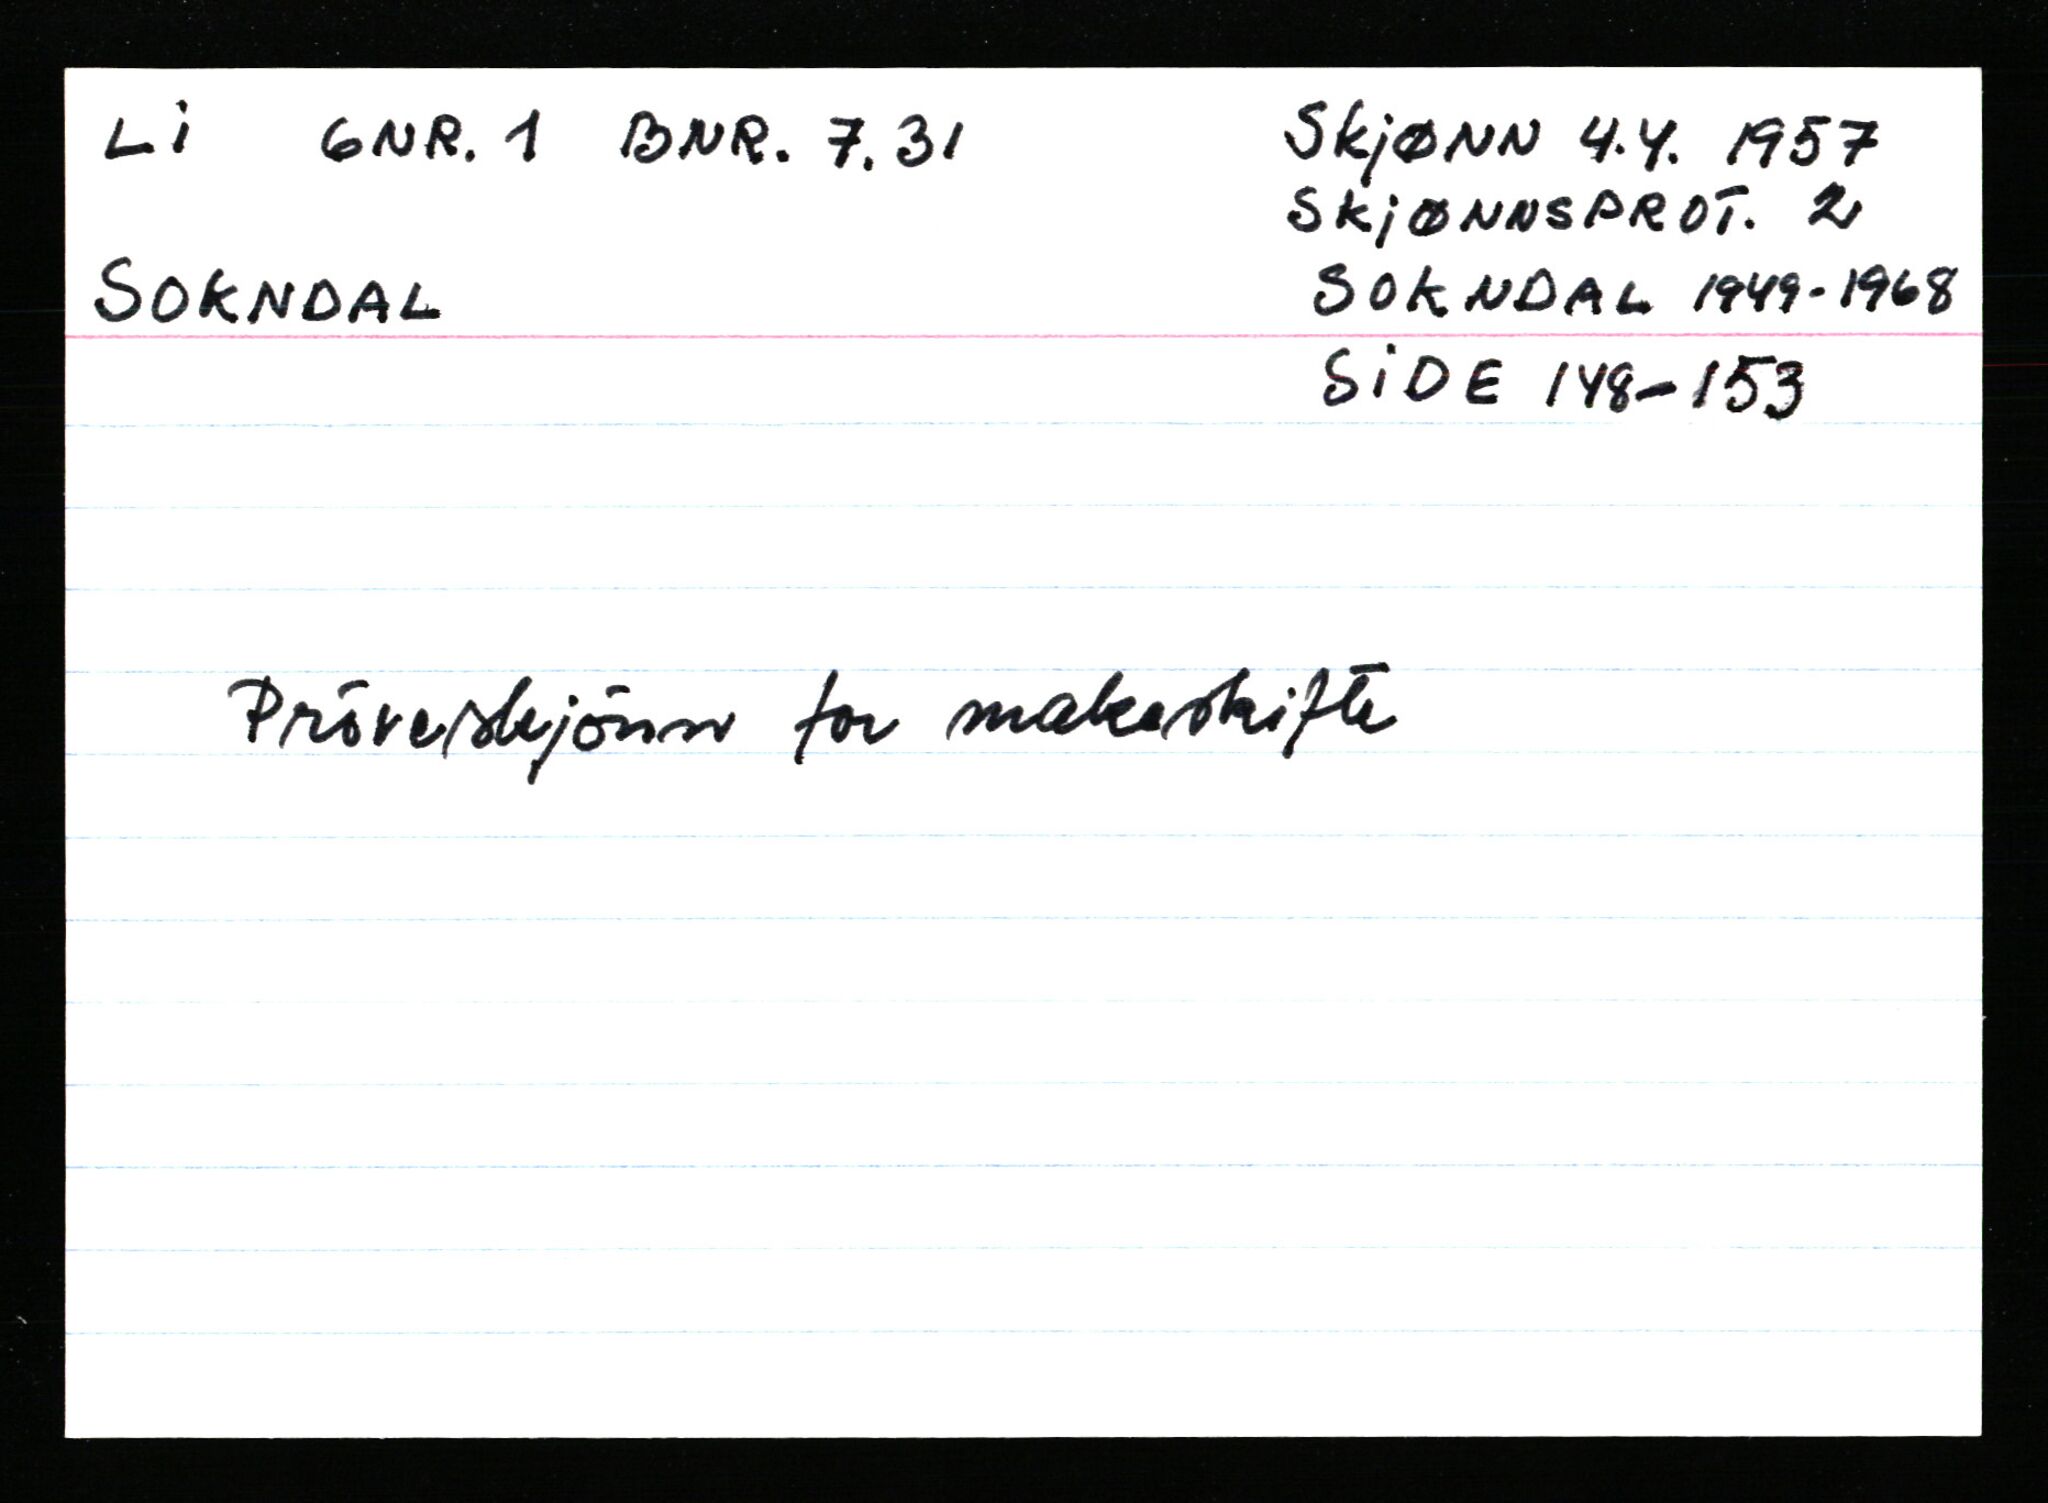 Li GNR. 1 BNR. 7.31
SOKNDAL
SkjØNN 4.4. 1957
SkjØNNSPROT. 2
SOKNDAL 1949-1968
SiDE 148-153
Pröveskjönn for makeskifte